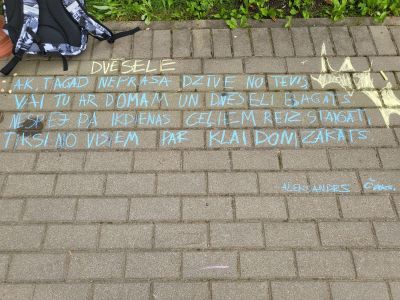 DVĒSELE
AK, TAGAD NEPRASA DZĪVE NO TEVIS,
VAI TU AR DOMĀM UN DVĒSELI BAGĀTS
NESPĒJ PA IKDIENAS CEĻIEM REIZ STAIGĀT,
TIKSI NO VISIEM PAR KLAIDONI ZĀKĀTS.
ALEKSANDRS ČAKS.